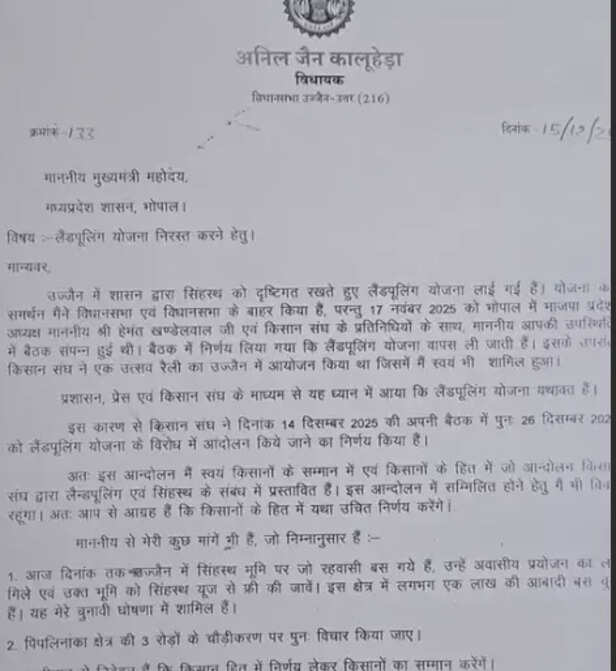 अनिल जैन कालूहेड़ा
विधायक
विधानसभा उज्जैन-उत्तर (216)
क्रमांक-133
दिनांक-15/12/2
माननीय मुख्यमंत्री महोदय,
मध्यप्रदेश शासन, भोपाल।
विषय :–लैंडपूलिंग योजना निरस्त करने हेतु।
मान्यवर,
उज्जैन में शासन द्वारा सिंहस्थ को दृष्टिगत रखते हुए लैंडपूलिंग योजना लाई गई हैं। योजना क
समर्थन मैंने विधानसभा एवं विधानसभा के बाहर किया हैं, परन्तु 17 नवंबर 2025 को भोपाल में भाजपा प्रदेश
अध्यक्ष माननीय श्री हेमंत खण्डेलवाल जी एवं किसान संघ के प्रतिनिधियों के साथ, माननीय आपकी उपस्थिति
में बैठक संपन्न हुई थी। बैठक में निर्णय लिया गया कि लैंडपूलिंग योजना वापस ली जाती हैं। इसके
किसान संघ ने एक उत्सव रैली का उज्जैन में आयोजन किया था जिसमें मैं स्वयं भी शामिल हुआ।
प्रशासन, प्रेस एवं किसान संघ के माध्यम से यह ध्यान में आया कि लैंडपूलिंग योजना यथावत हैं।
इस कारण से किसान संघ ने दिनांक 14 दिसम्बर 2025 की अपनी बैठक में पुनः 26 दिसम्बर 202
को लैंडपूलिंग योजना के विरोध में आंदोलन किये जाने का निर्णय किया हैं।
अतः इस आन्दोलन में स्वयं किसानों के सम्मान में एवं किसानों के हित में जो आन्दोलन किसा
संघ द्वारा लैन्डपूलिंग एवं सिंहस्थ के संबंध में प्रस्तावित हैं। इस आन्दोलन में सम्मिलित होने हेतु मैं भी
रहूंगा। अतः आप से आग्रह हैं कि किसानों के हित में यथा उचित निर्णय करेंगे।
माननीय से मेरी कुछ मांगें भी हैं, जो निम्नानुसार हैं :–
1. आज दिनांक तक उज्जैन में सिंहस्थ भूमि पर जो रहवासी बस गये हैं, उन्हें अवासीय प्रयोजन का ल
मिले एवं उक्त भूमि को सिंहस्थ यूज से फ्री की जावें। इस क्षेत्र में लगभग एक लाख की आबादी बस चु
हैं। यह मेरे चुनावी घोषणा में शामिल हैं।
2. पिपलिनाका क्षेत्र की 3 रोड़ों के चौड़ीकरण पर पुनः विचार किया जाए।
हैं कि किसान हित में निर्णय लेकर किसानों का सम्मान करेंगें।